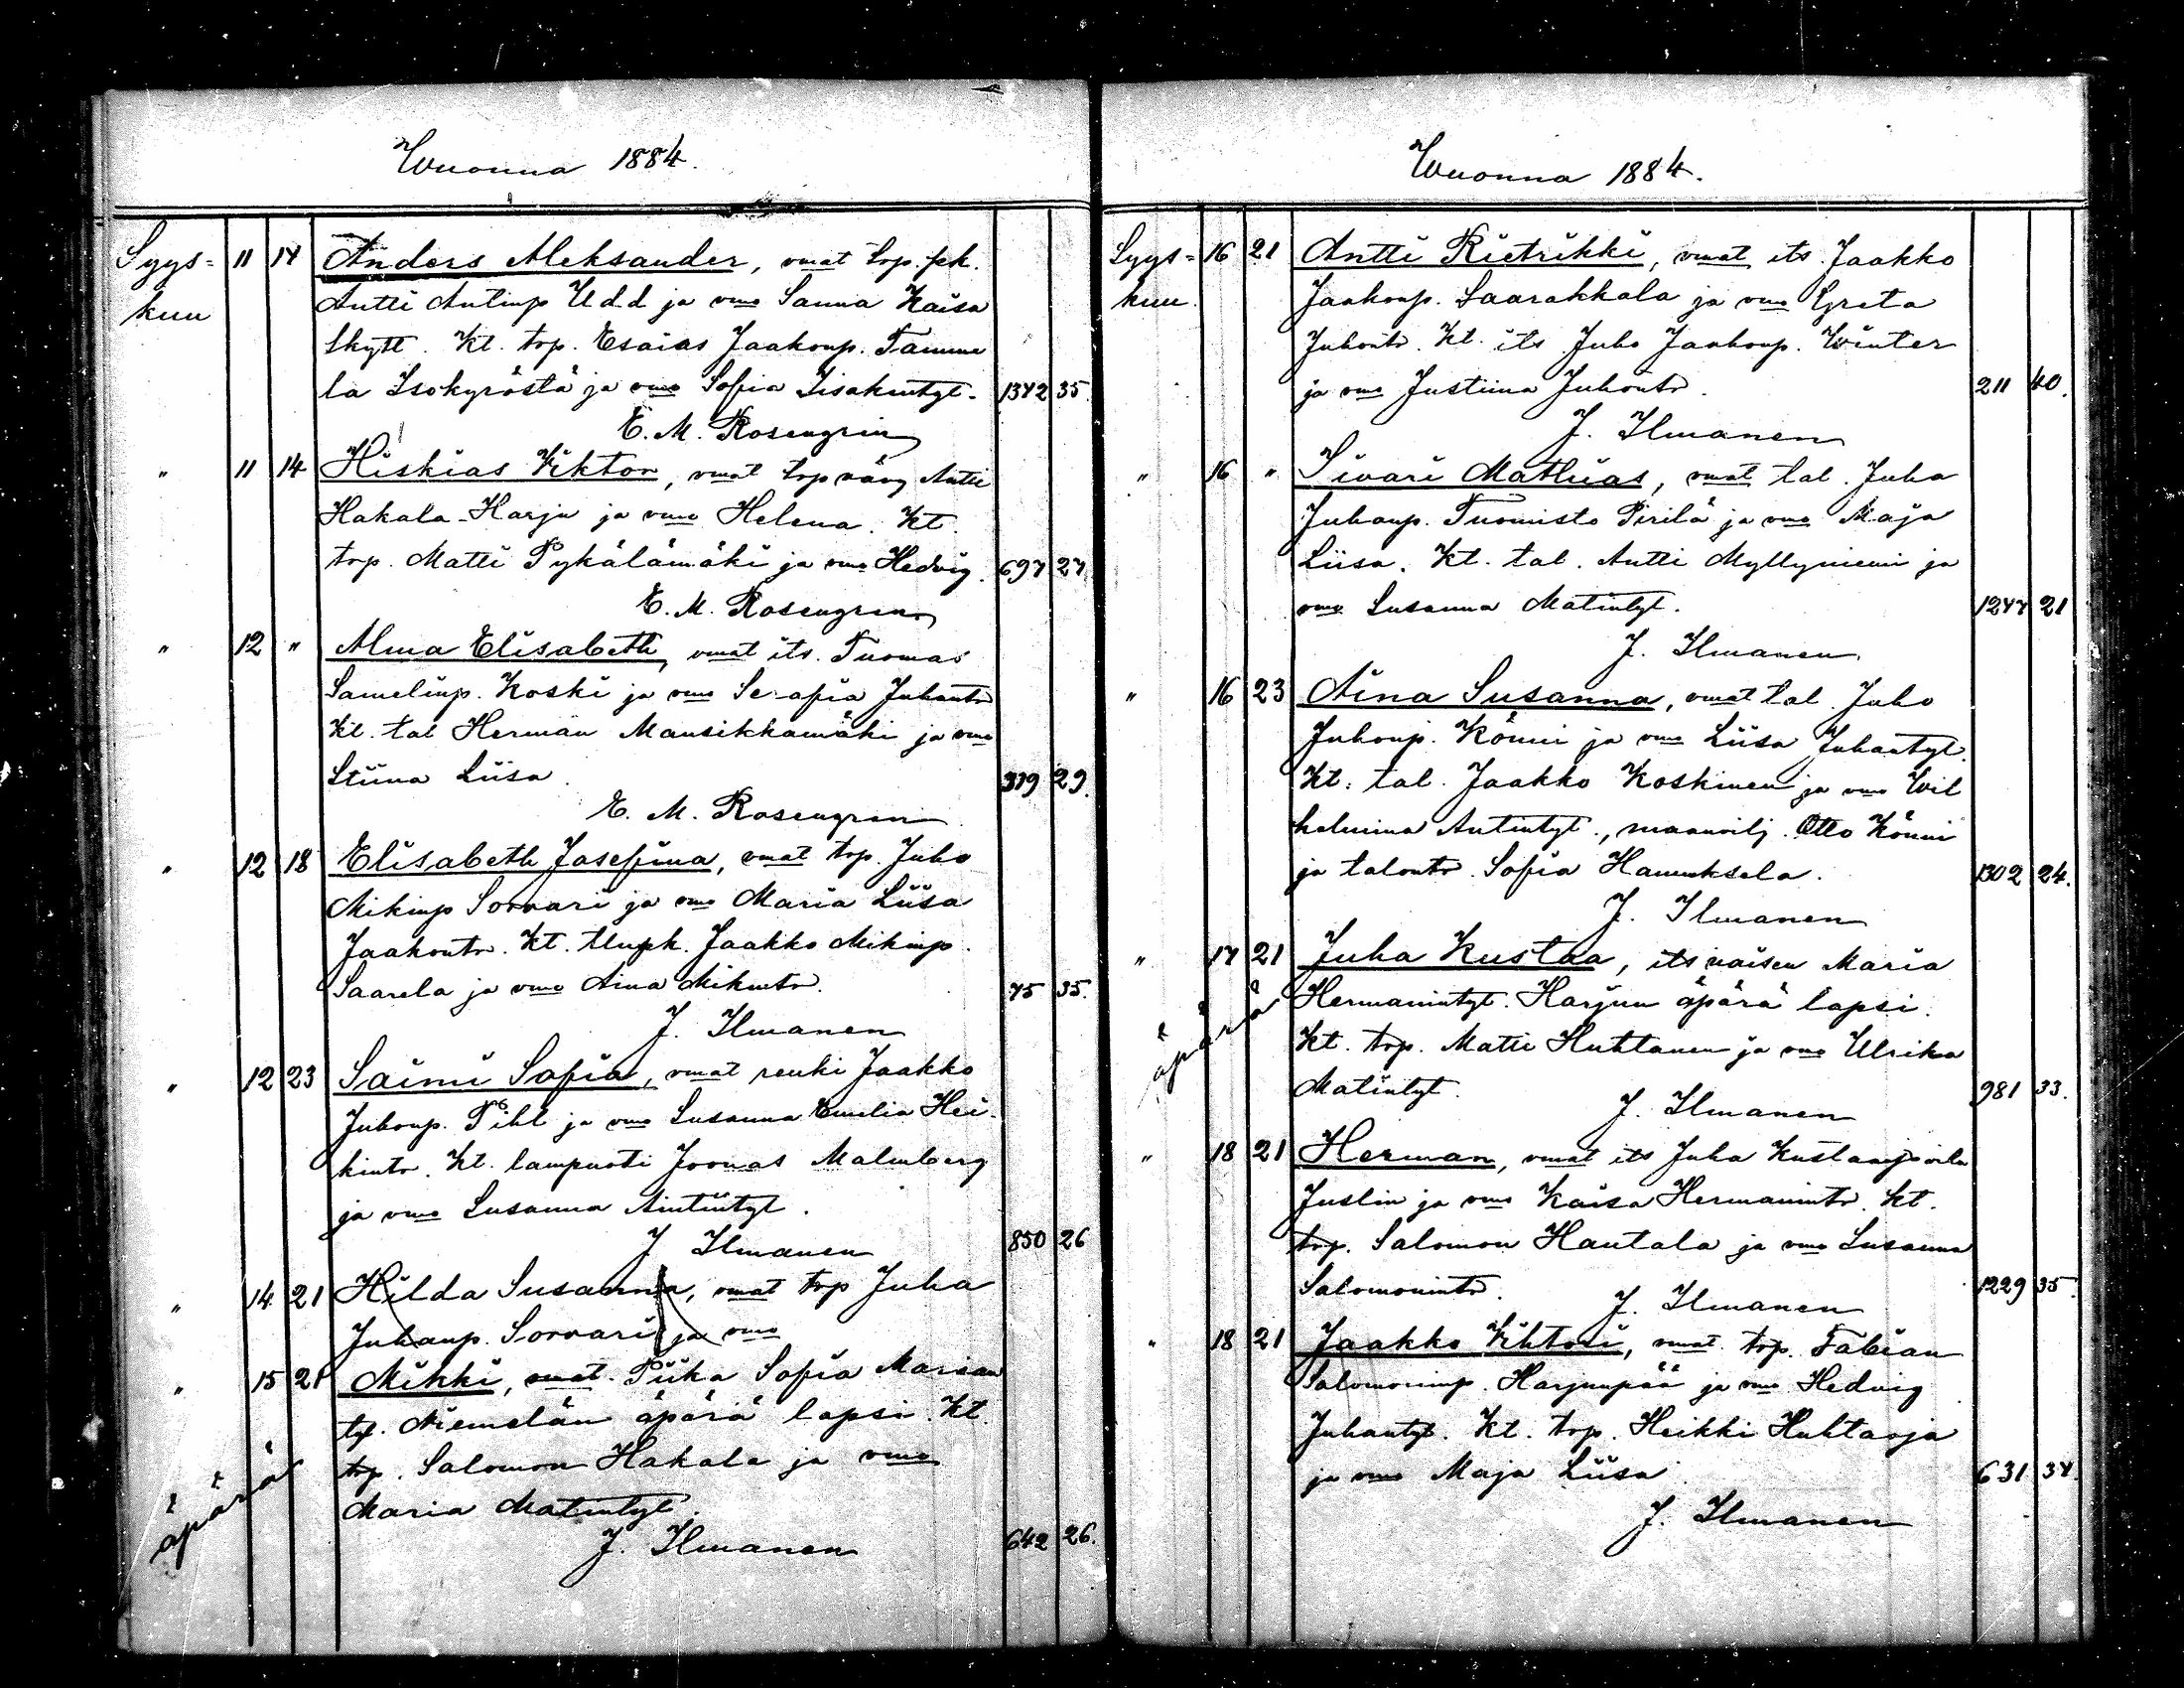 Wuonna 1884.
Syys- 11 14 Anders Aleksander, vmat trp. pk.
kuu Antti Antinp Udd ja vmo Sanna Kaisa
Skytt. Kt. trp. Esaias Jaakonp. Tamme
la Isokyröstä ja vmo Sofia Iisakintyt. 1342 35.
E. M. Rosengrin
" 11 14 Hiskias Viktor, vmat trp väv Antti
Hakala-Harju ja vmo Helena. Kt
trp. Matti Pykälämäki ja vmo Hedvig. 697 27
E. M. Rosengren
" 12 " Alma Elisabeth, vmat its. Tuomas
Samelinp. Koski ja vmo Serafia Juhontr
Kt. tal Herman Mansikkamäki ja vmo
Stiina Liisa. 319 29.
E. M. Rosengren
" 12 18 Elisabeth Josefina, vmat trp. Juho
Mikinp Sorvari ja vmo Maria Liisa
Jaakontr. Kt. tlnpk. Jaakko Mikinp.
Saarela ja vmo Aina Mikintr. 75 35.
J. Ilmanen
" 12 23 Saimi Sofia, vmat renki Jaakko
Juhonp. Pihl ja vmo Susanna Emelia Hei-
kintr. Kt. lampuoti Joonas Malmberg
ja vmo Susanna Antintyt.
J Ilmanen 850 26
" 14 21 Hilda Susanna, vmat trp Juha
Juhanp. Sorvari ja vmo
" 15 21 Mikki, vmat. Piika Sofia Marian
ty. Niemelän äpärä lapsi. Kt.
äpärä trp. Salomon Hakala ja vmo
Maria Matintyt.
J. Ilmanen 642 26.
Wuonna 1884.
Syys- 16 21 Antti Rietrikki, vmat its. Jaakko
kuu. Jaakonp. Saarakkala ja vmo Greta
Juhontr. Kt. its Juho Jaakonp. Winter
ja vmo Justiina Juhontr. 211 40.
J. Ilmanen
" 16 " Sivari Mathias, vmat tal. Juha
Juhanp. Tuomisto Pirilä ja vmo Maja
Liisa. Kt. tal. Antti Myllyniemi ja
vmo Susanna Matintyt. 1247 21
J. Ilmanen.
" 16 23 Aina Susanna, vmat tal. Juho
Juhonp. Könni ja vmo Liisa Juhantyt.
Kt. tal. Jaakko Koskinen ja vmo Wil
helmina Antintyt., maanvilj. Otto Könni
ja talontr. Sofia Hanuksela. 1302 24.
J. Ilmanen
" 17 21 Juha Kustaa, its naisen Maria
äpärä Hermanintyt. Harjun äpärä lapsi.
Kt. trp. Matti Huhtanen ja vmo Ulrika
Matintyt. 981 33.
J. Ilmanen
" 18 21 Herman, vmat its Juha Kustaanp
Juslin ja vmo Kaisa Hermanintr. Kt.
trp. Salomon Hautala ja vmo Susanna
Salomonintr. 1229 35.
J. Ilmanen
" 18 21 Jaakko Vihtori, vmat. trp. Fabian
Salomoninp. Harjunpää ja vmo Hedvig
Juhantyt. Kt. trp. Heikki Huhtaoja
ja vmo Maja Liisa. 631 34.
J. Ilmanen